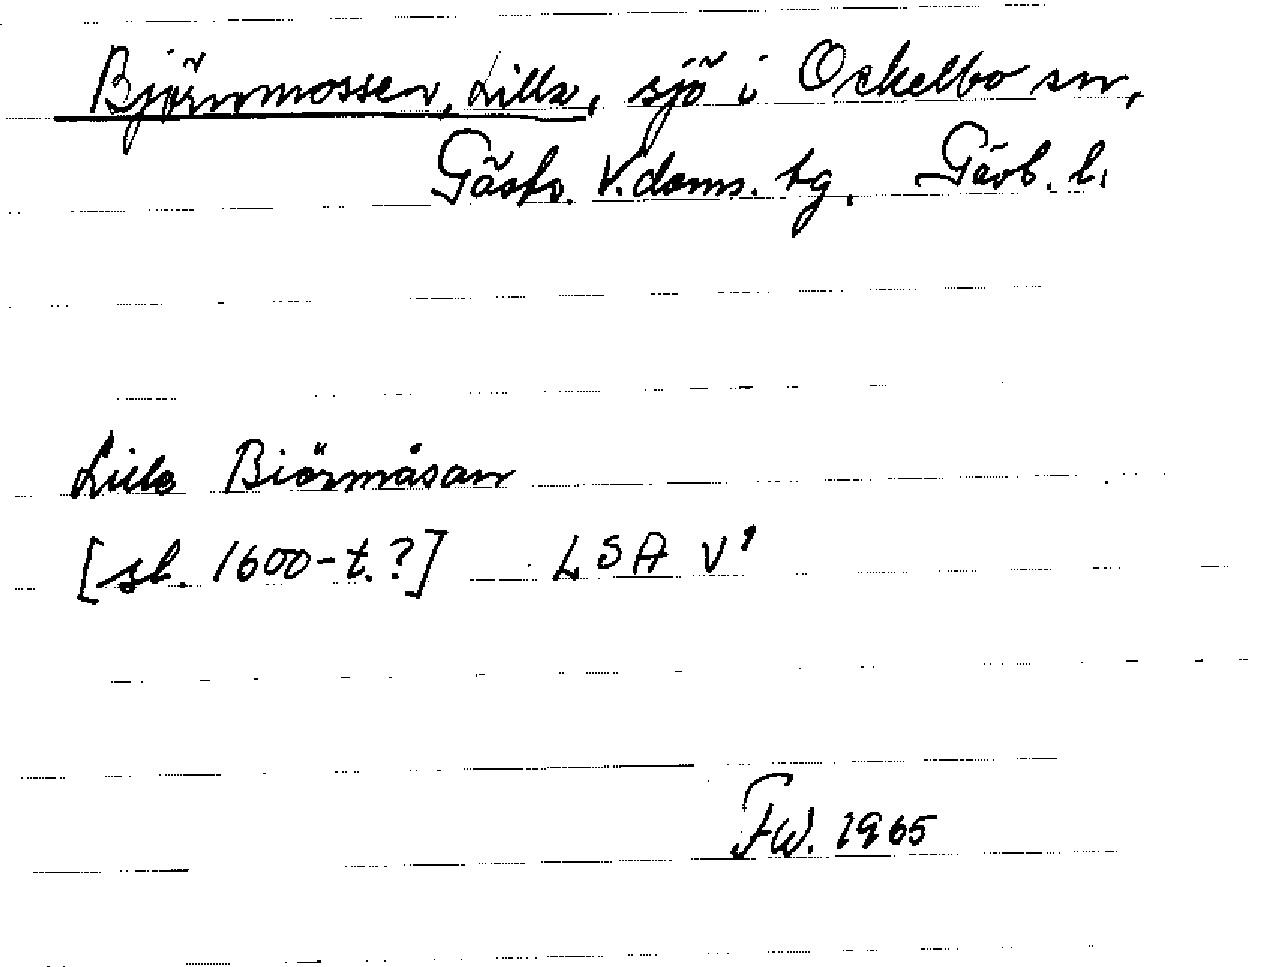 Björnmossen, Lilla, sjö i Ockelbo sn,
Gästr. V. doms. tg. Gävl. l.
Lilla Biörmåsan
[sl. 1600-t.?] LSA V'
FW. 1965